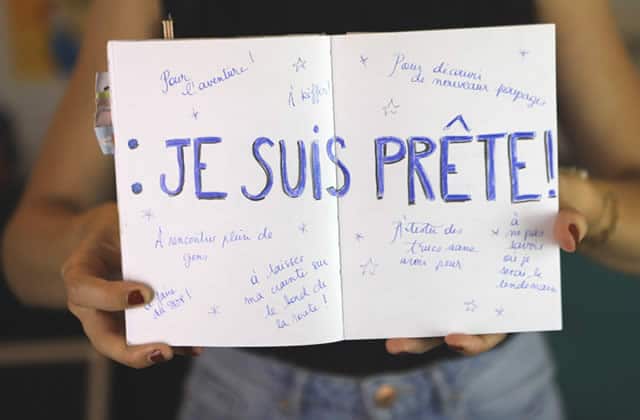 Pour
l'aventure!
à kiffer!
Pour découvrir
de nouveaux paysages
: JE SUIS PRÊTE!
À rencontrer plein de
gens
à laisser
ma crainte sur
le bord de
la route!
À tester des
trucs sans
avoir peur
à
ne pas
savoir
où je
serai le
lendemain
à faire
du